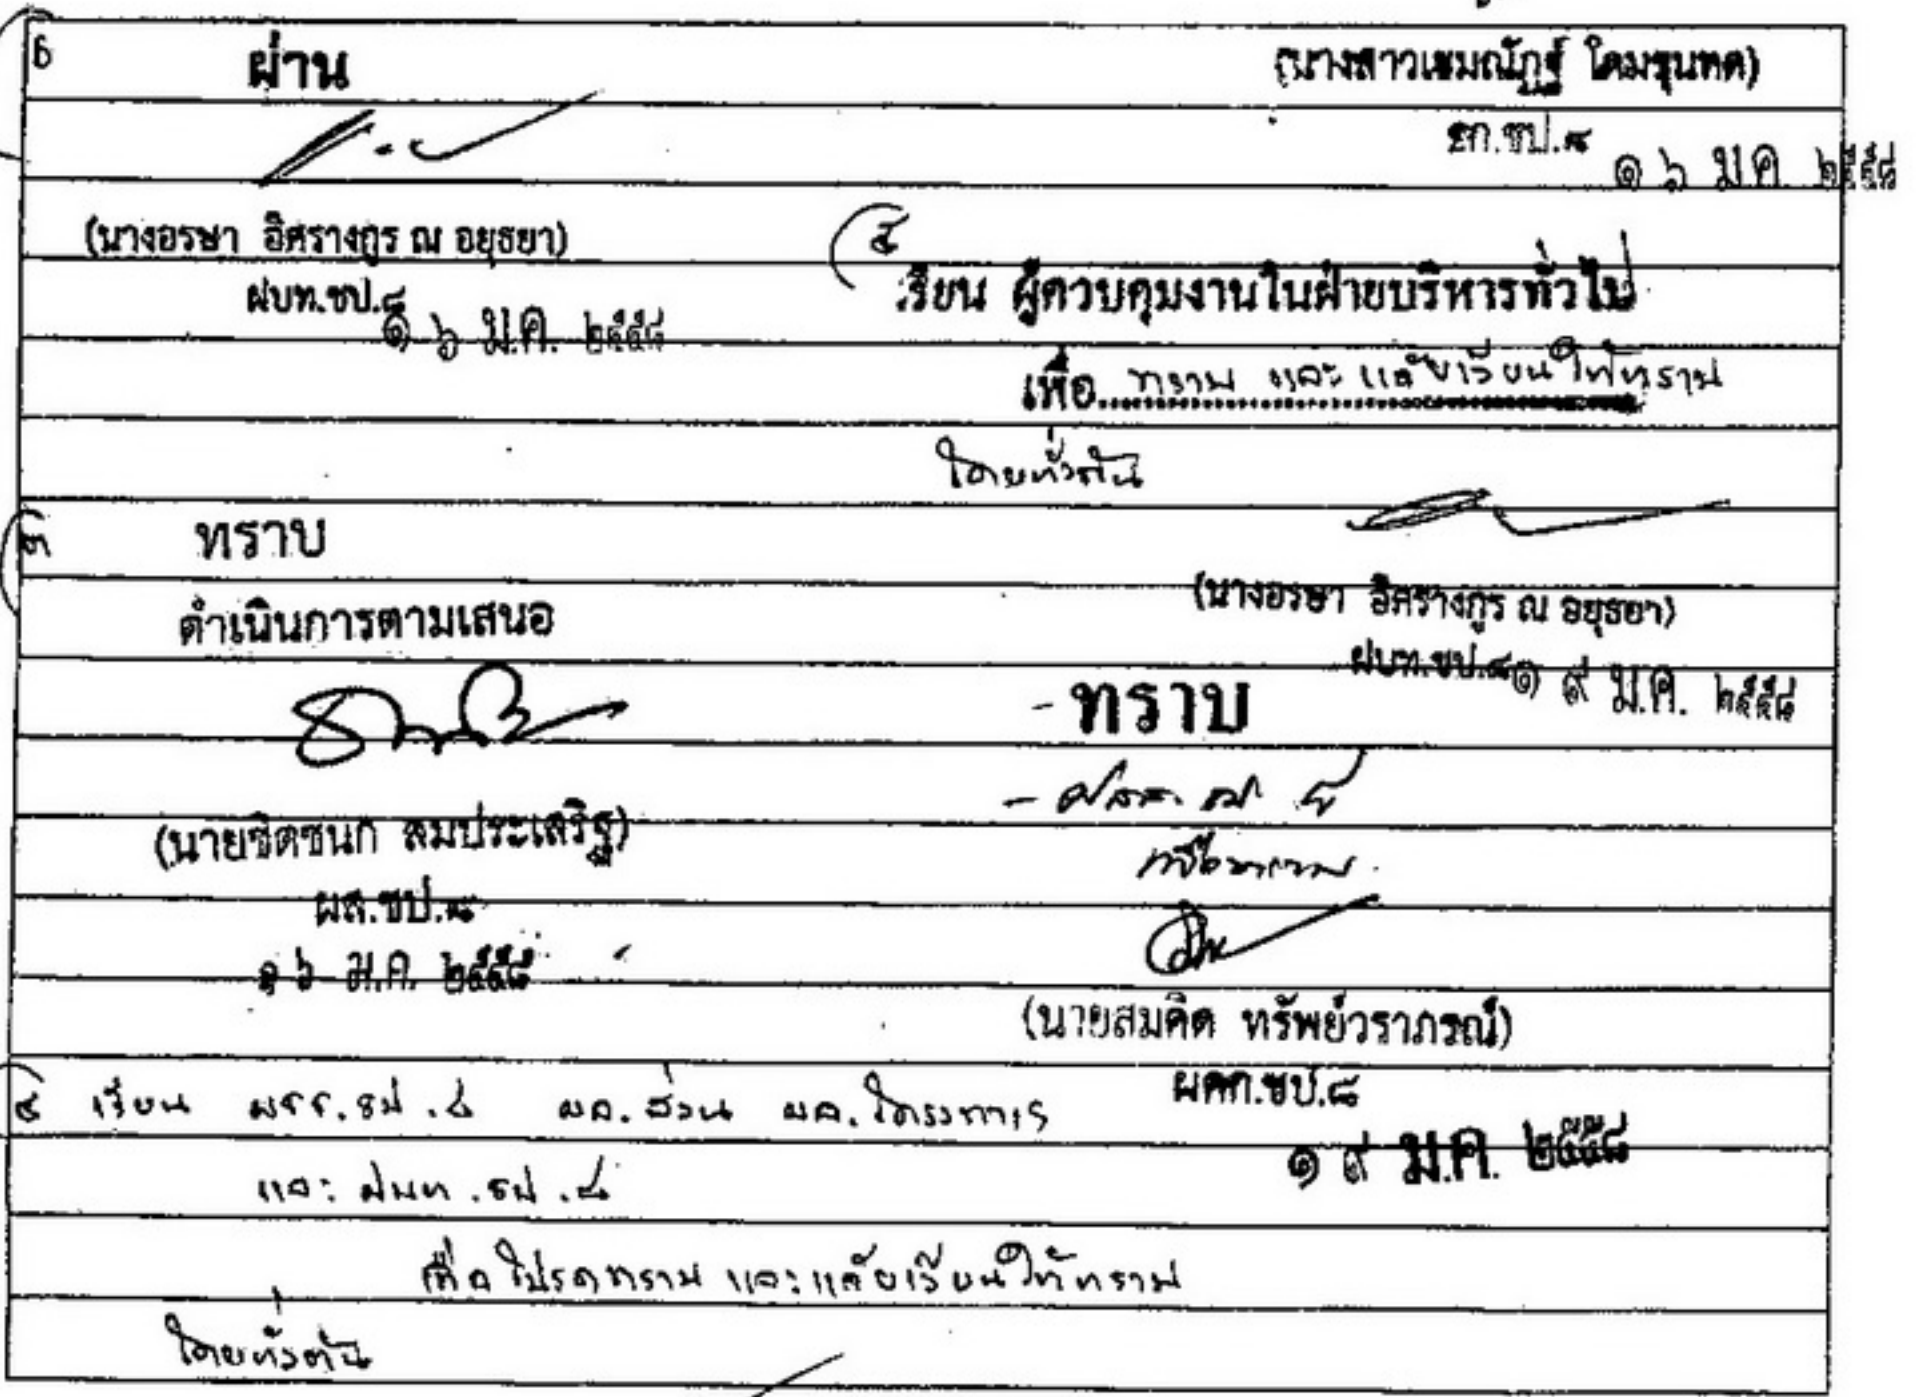 ผ่าน
(นางอรษา อิศรางกูร ณ อยุธยา)
ฝบท.ชป.๘
๑๖ ม.ค. ๒๕๕๘
๓
ทราบ
ดำเนินการตามเสนอ
(นายชิตชนก สมประเสริฐ)
ผส.ชป.๘
๑๖ ม.ค. ๒๕๕๘
๔ เรียน ชป.๘ ผอ.ส่วน ผอ.โครงการ
และ ฝบท.ชป.๘
เพื่อโปรดทราบ และแจ้งเวียนให้ทราบ
โดยทั่วกัน
(นางสาวเขมณัฏฐ์ โดมขุนทด)
ชป.๘
๑๖ ม.ค. ๒๕๕๘
๕
เรียน ผู้ควบคุมงานในฝ่ายบริหารทั่วไป
เพื่อ ทราบ และ แจ้งเวียนให้ทราบ
โดยทั่วกัน
(นางอรษา อิศรางกูร ณ อยุธยา)
ฝบท.ชป.๘
๑๙ ม.ค. ๒๕๕๘
- ทราบ
(นายสมคิด ทรัพย์วราภรณ์)
ผคก.ชป.๘
๑๙ ม.ค. ๒๕๕๘